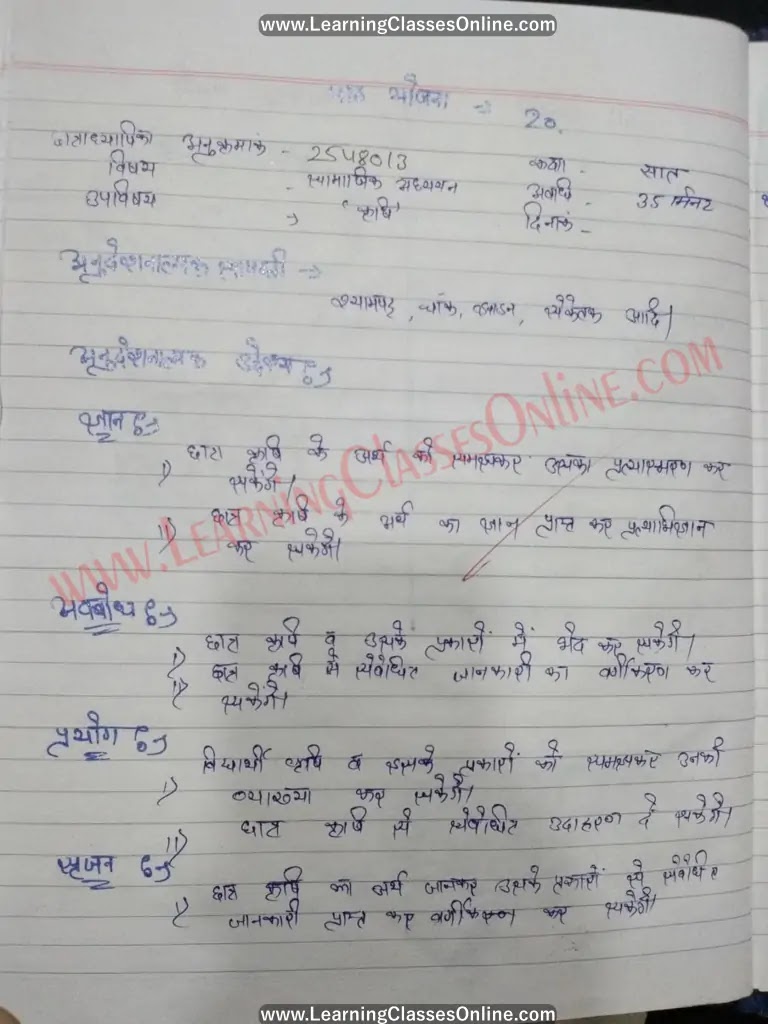 www.LearningClassesOnline.com
पाठ योजना → 20.
छात्राध्यापिका अनुक्रमांक - 2548013 कक्षा - सात
विषय - सामाजिक अध्ययन अवधि - 35 मिनट
उपविषय → 'कृषि' दिनांक -
अनुदेशनात्मक सामग्री →
श्यामपट्ट, चॉक, झाडन, संकेतक आदि।
अनुदेशनात्मक उद्देश्य :→
ज्ञान :→
i) छात्र कृषि के अर्थ को समझकर उसका प्रत्यास्मरण कर
सकेंगे।
ii) छात्र कृषि के अर्थ का ज्ञान प्राप्त कर प्रत्याभिज्ञान
कर सकेंगे।
अवबोध :→
i) छात्र कृषि व उसके प्रकारों में भेद कर सकेंगे।
ii) छात्र कृषि से संबंधित जानकारी का वर्गीकरण कर
सकेंगे।
प्रयोग :→
i) विद्यार्थी कृषि व इसके प्रकारों को समझकर उनकी
व्याख्या कर सकेंगे।
ii) छात्र कृषि से संबंधित उदाहरण दे सकेंगे।
सृजन :→
i) छात्र कृषि का अर्थ जानकर उसके प्रकारों से संबंधित
जानकारी प्राप्त कर वर्गीकरण कर सकेंगे।
www.LearningClassesOnline.com
www.LearningClassesOnline.com